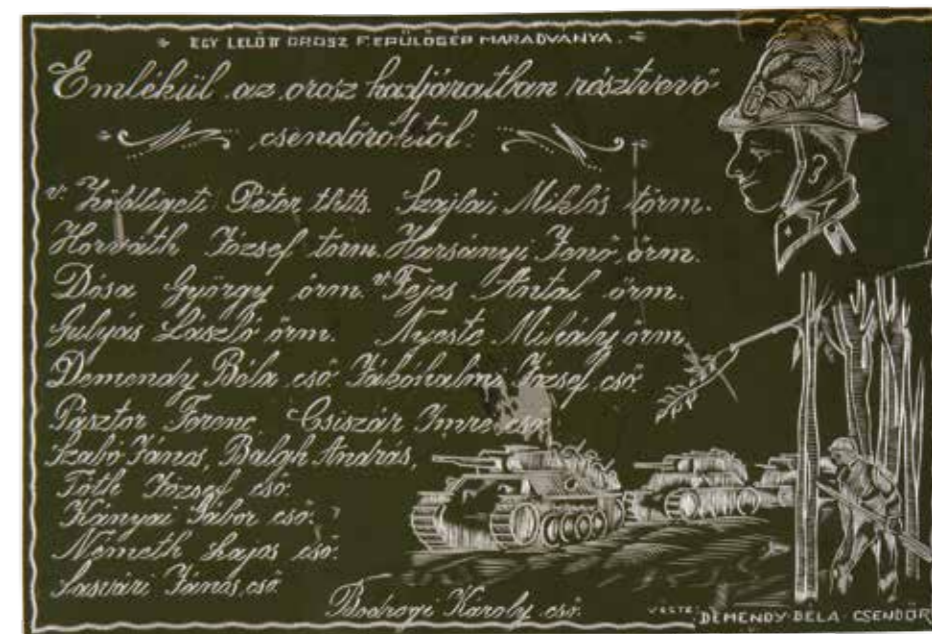 EGY LELŐTT OROSZ REPÜLŐGÉP MARADVÁNYA.
Emlékül az orosz hadjáratban résztvevő
csendőröktől.
v. Zöldligeti Péter thtts. Szajlai Miklós törm.
Horváth József törm. Harsányi Jenő őrm.
Dósa György őrm. v. Fejes Antal őrm.
Gulyás László őrm. Nyeste Mihály őrm.
Demendy Béla cső. Jákóhalmi József cső.
Pásztor Ferenc, Csiszár Imre cső.
Szabó János, Balgh András,
Tóth József cső.
Kányai Gábor cső.
Németh Lajos cső.
Lasvári János, cső.
Bodrogi Károly cső.
VESTE: DEMENDY BÉLA CSENDŐR